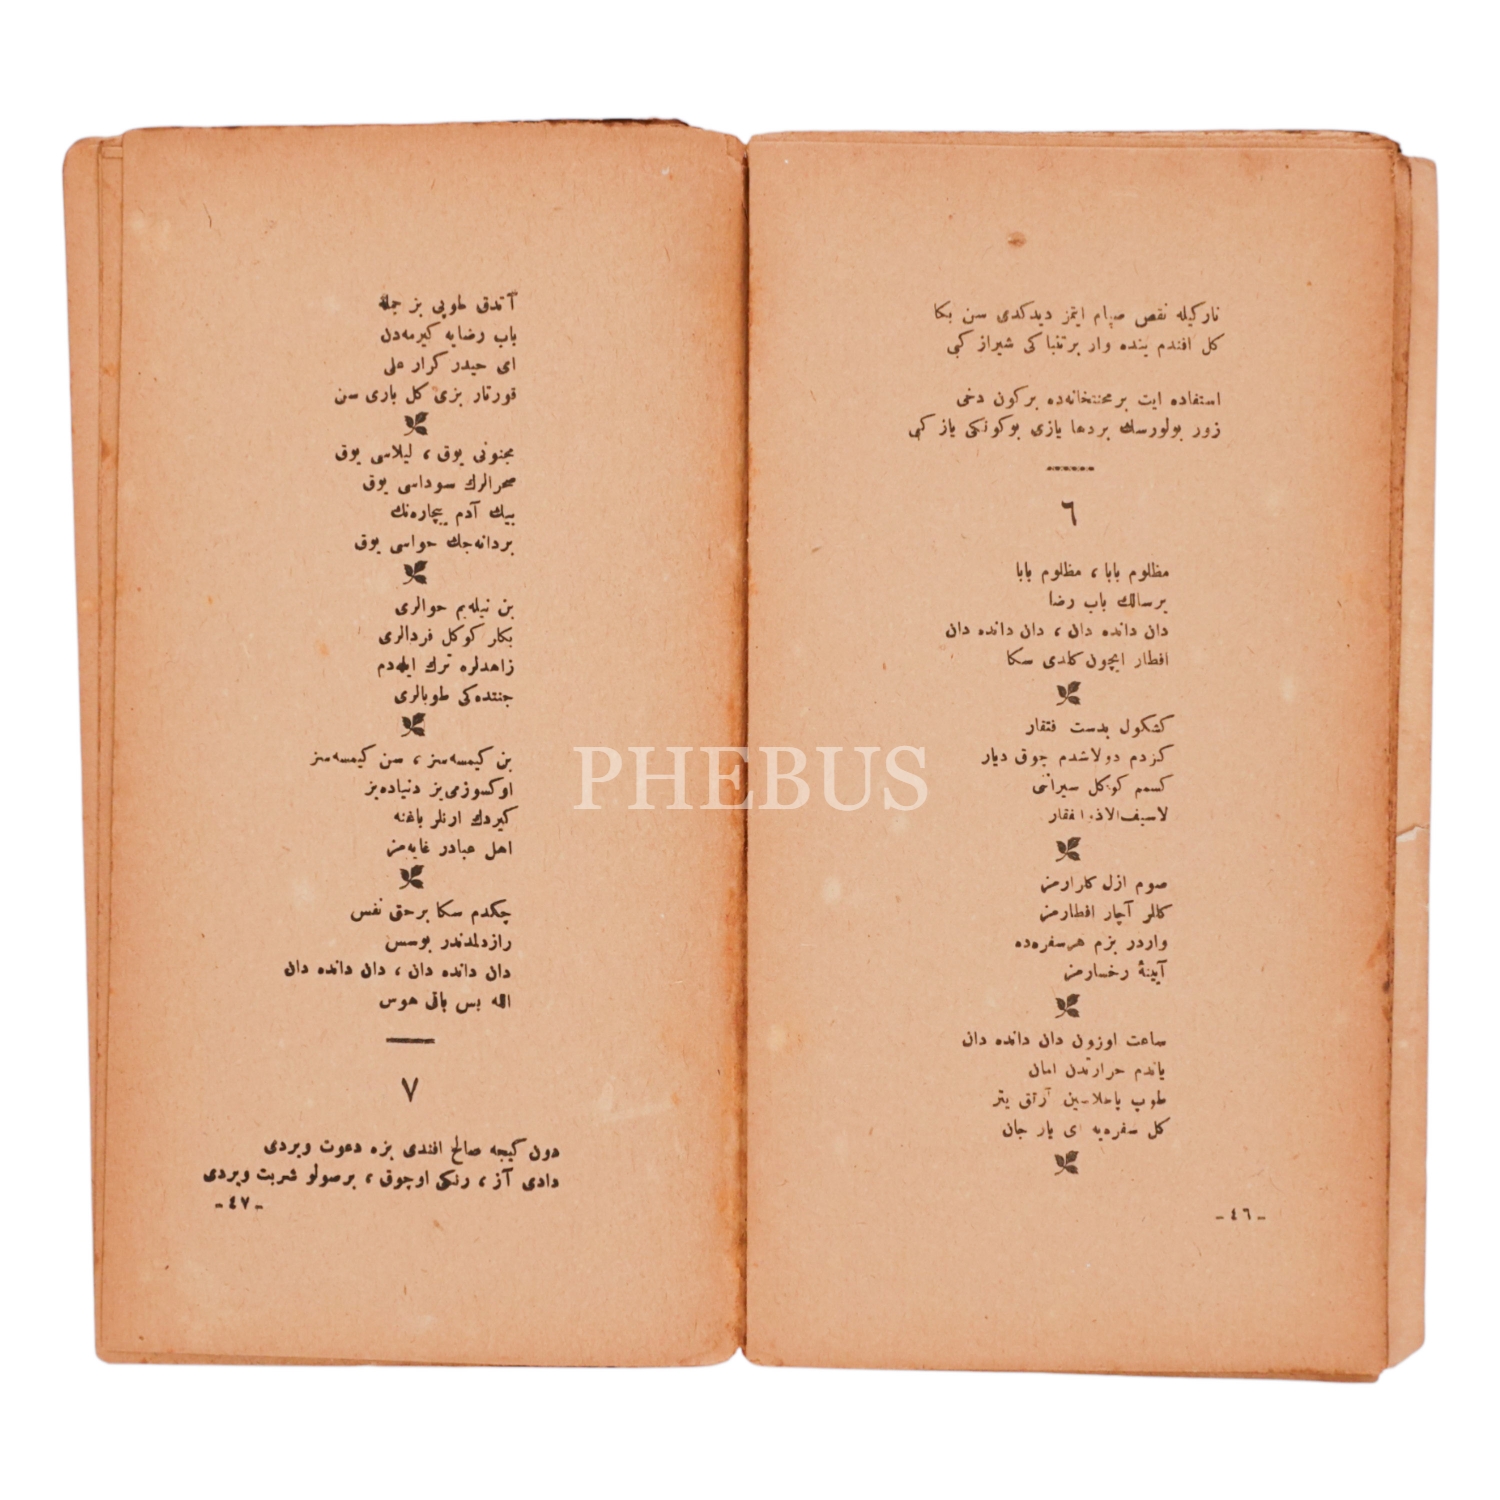 نارکیله نقص صیام ایتمز دیدکدی سن بکا
کل افندم بنده وار بر تنباکی شیراز کبی
استفاده ایت بر محنتخانه‌ده بر کون دخی
زور بولورسك بر دها یازی بو کونکی یاز کبی
٦
مظلوم بابا ، مظلوم بابا
بر سالك باب رضا
دان دانده دان ، دان دانده دان
افطار ایچون کلدی سکا
کشکول بدست فتقار
کزدم دولاشدم جوق دیار
کسمم کوکل سیراننی
لاسیف الا ذوالفقار
صوم ازل کارارمز
کالر آچار افطارمز
واردر بزم هر سفره‌ده
آیینهٔ رخسارمز
ساعت اوزون دان دانده دان
یاندم حرارتدن امان
طوپ پاطلاسین آرتق یتر
کل سفره‌یه ای یار جان
- ٤٦ -
آتدق طوپی بز جمله
باب رضایه کیرمه‌دن
ای حیدر کرار علی
قورتار بزی کل باری سن
مجنونی یوق ، لیلاسی یوق
صحرالرك سوداسی یوق
بیك آدم بیچاره‌نك
بردانه‌جك حواسی یوق
بن نیله‌یم حوالری
بکار کوکل فردالری
زاهدلره ترك ایله‌دم
جنتده‌کی طوبالری
بن کیمسه‌سز ، سن کیمسه‌سز
اوکسوزمی‌یز دنیاده‌بز
کیردك ارنلر باغنه
اهل عبادر غایه‌مز
چکدم سکا بر حق نفس
رازدلمدندر بوسس
دان دانده دان ، دان دانده دان
الله بس باقی هوس
٧
دون کیجه صالح افندی بزه دعوت ویردی
دادی آز ، رنکی اوچوق ، بر صولو شربت ویردی
- ٤٧ -
PHEBUS